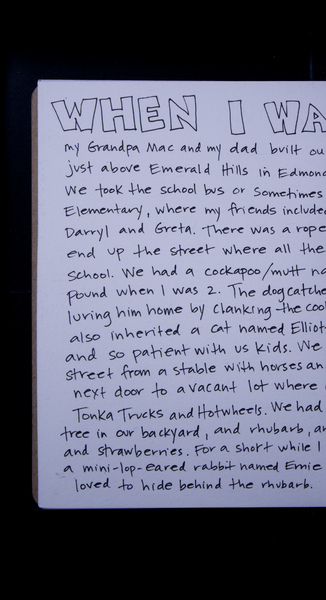 WHEN I WA
my Grandpa Mac and my dad built ou
just above Emerald Hills in Edmond
We took the school bus or sometimes
Elementary, where my friends include
Darryl and Greta. There was a rope
end up the street where all the
school. We had a cockapoo/mutt na
pound when I was 2. The dogcatche
luring him home by clanking the coo
also inherited a cat named Elliot
and so patient with us kids. We
street from a stable with horses an
next door to a vacant lot where
Tonka Trucks and Hotwheels. We had
tree in our backyard, and rhubarb, an
and strawberries. For a short while I
a mini-lop-eared rabbit named Ernie
loved to hide behind the rhubarb.